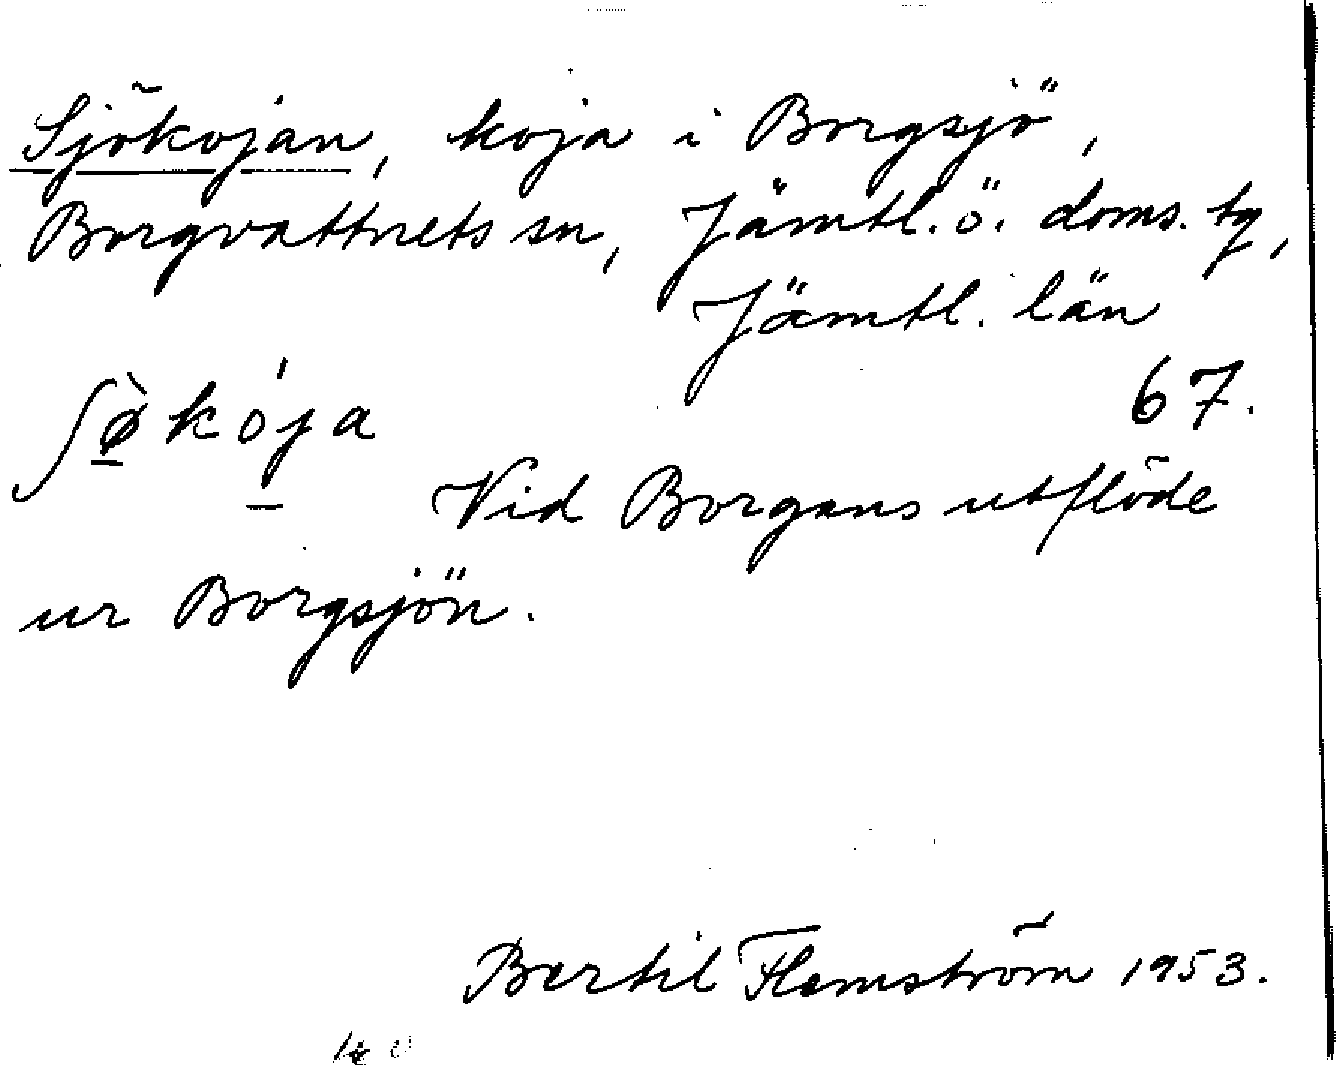 Sjökojan, koja i Borgsjö,
Borgvattnets sn, Jämtl. ö. doms. tg,
Jämtl. län
ʃø̀kója 67.
Vid Borgans utflöde
ur Borgsjön.
Bertil Flemström 1953.